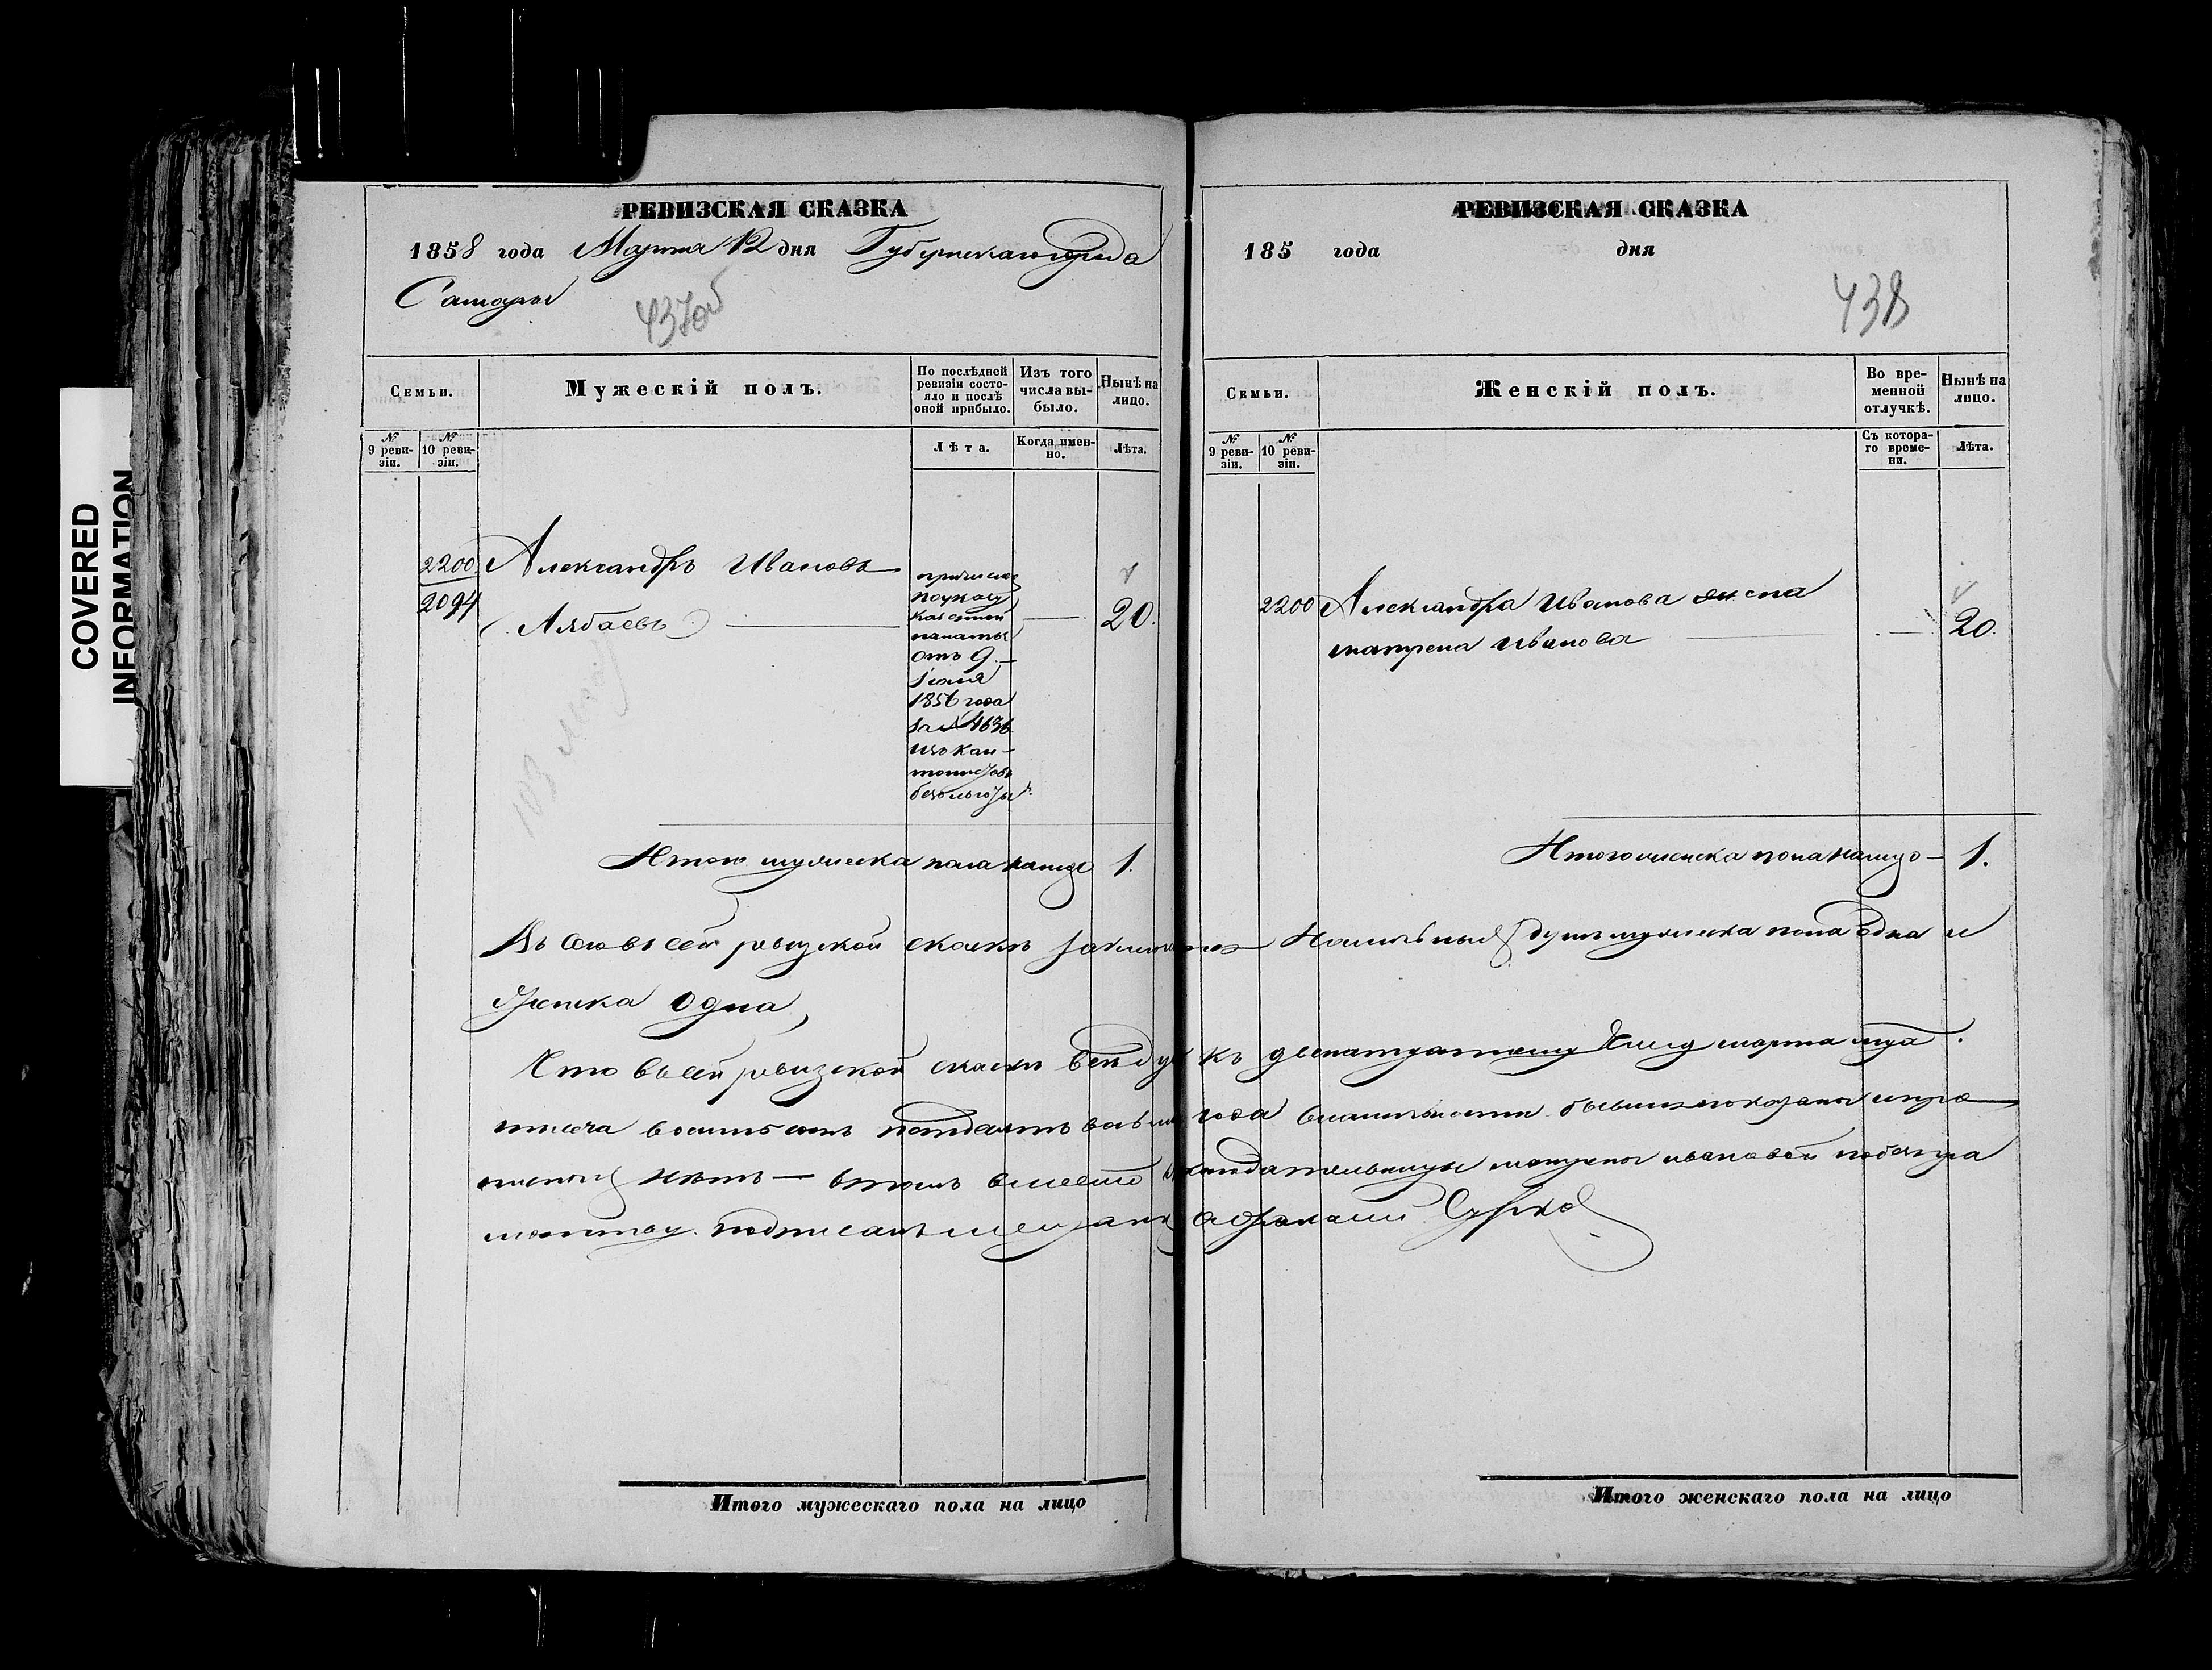 COVERED
INFORMATION
РЕВИЗСКАЯ СКАЗКА
1858 года Марта 12 дня Губернскаго города
Самары
437об
Семьи.
Мужескій полъ.
По послѣдней ревизіи состо-яло и послѣ оной прибыло.
Изъ того числа вы-было.
Нынѣ на лицо.
№ 9 реви-зіи.
№ 10 реви-зіи.
Лѣта.
Когда имен-но.
Лѣта.
2200
2094
Александръ Ивановъ
(Албаевъ)
причислен
по указу
казенной
палаты
отъ 9
Іюня
1856 года
за № 4636
изъ кан-
тонистовъ
20.
Итого мужеска пола на лицо 1.
РЕВИЗСКАЯ СКАЗКА
185 года дня
438
Семьи.
Женскій полъ.
Во вре-менной отлучкѣ.
Нынѣ на лицо.
№ 9 реви-зіи.
№ 10 реви-зіи.
Съ котора-го време-ни.
Лѣта.
2200
Александра Иванова жена
матрена Иванова
20.
Итого женска пола на лицо 1.
сей ревизской сказкѣ наличныхъ душъ мужеска пола одна и
женска одна,
Что в сей ревизской сказкѣ всѣ душ къ двенатцатому числу марта
тысеча восимьсотъ года
нѣтъ — втомъ вместо матрены ивановой
подписалъ Сурков
Итого мужескаго пола на лицо
Итого женскаго пола на лицо